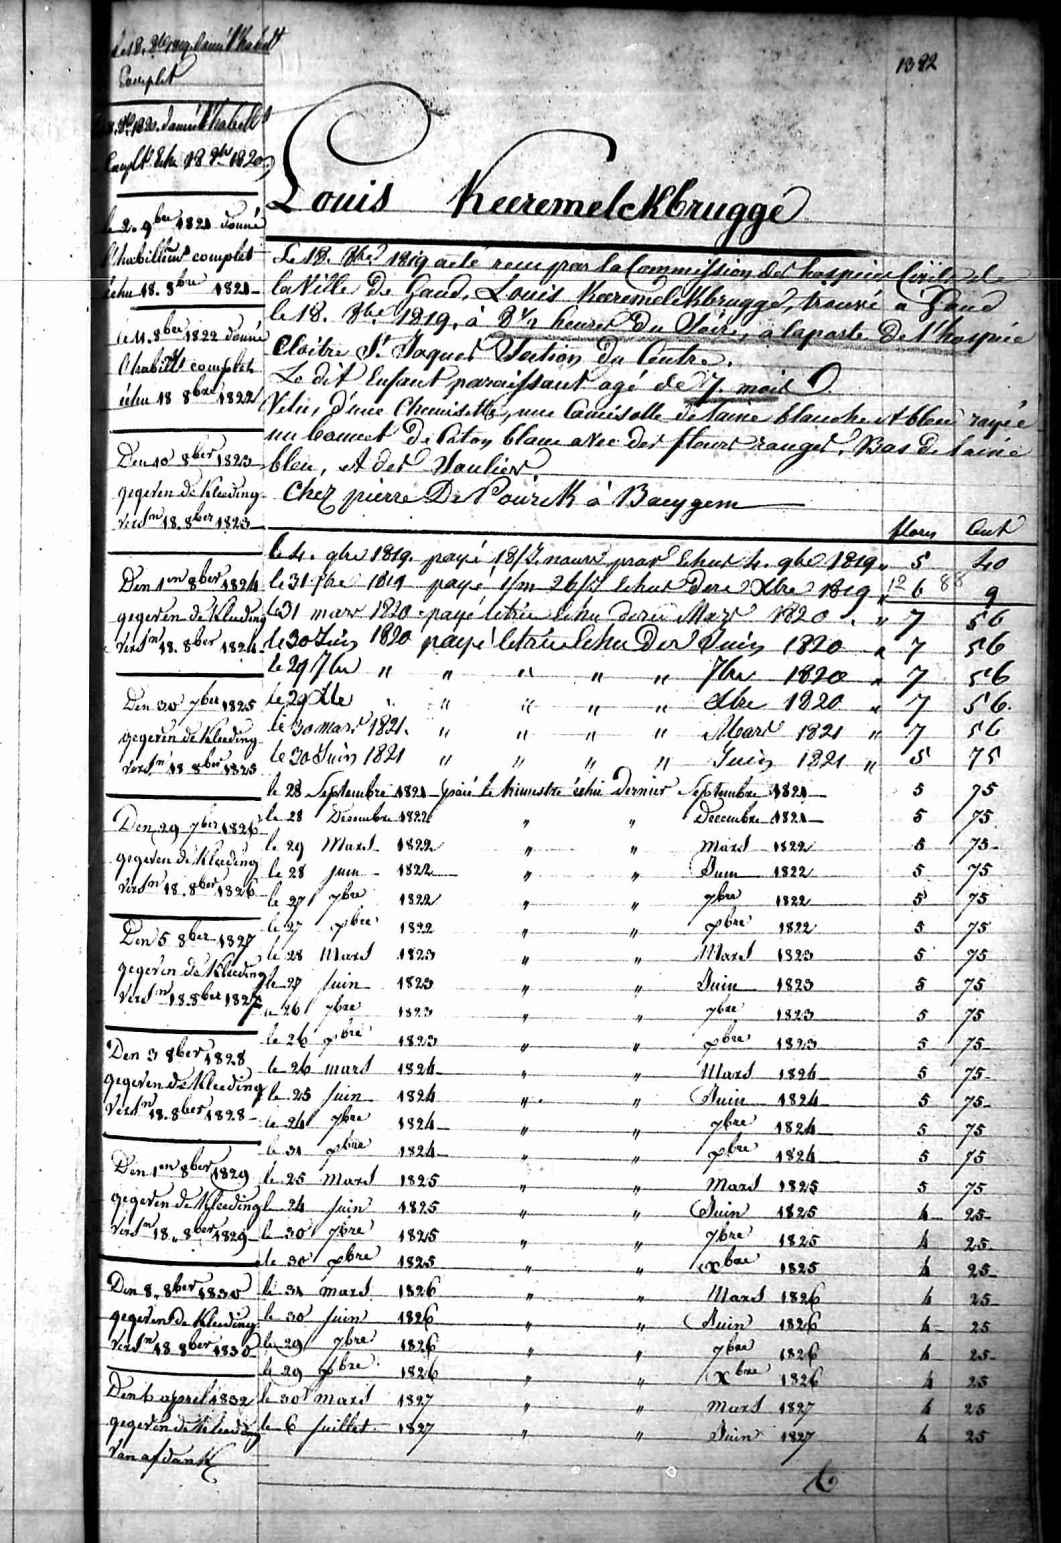 1382
Le 18. 8bre 1819 donné l'habilt
Complet
8bre 1820. donné l'habellt
Complt Echu 18 8bre 1820
le 2. 9bre 1821 donné
l'habillemt complet
échu 18. 8bre 1821
le 11. 8bre 1822 donné
l'habillt complet
échu 18 8bre 1822
Den 10 8ber 1823
gegeven de Kleeding
versn 18. 8ber 1823
Den 1en 8ber 1824
gegeven de Kleeding
versn 18. 8ber 1824
Den 30 7ber 1825
gegeven de Kleeding
versn 18 8ber 1825
Den 29 7ber 1826
gegeven de Kleeding
versn 18. 8ber 1826
Den 5 8ber 1827
gegeven de Kleeding
versn 18. 8ber 1827
Den 3 8ber 1828
gegeven de Kleeding
versn 18. 8ber 1828
Den 1en 8ber 1829
gegeven de Kleeding
versn 18. 8ber 1829
Den 8. 8ber 1830
gegeven de Kleeding
versn 18 8ber 1830
Den 6 april 1832
gegeven de Kleeding
van afdank
Louis Keeremelckbrugge
Le 18. 8bre 1819 a été reçu par la Commission des hospices Civils de
la Ville de Gand, Louis Keeremelckbrugge, trouvé à Gand
le 18. 8bre 1819, à 8 1/2 heures du Soire, à la porte de l'hospice
Cloitre St. Jaques Station du Centre.
Le dit Enfant paraissant agé de 7. mois
Vetu, d'une Chemisette, une Camisolle de laine blanche et bleu rayée
un bonnet de Caton blanc avec des fleurs rouges, Bas de laine
bleu, et des Souliers
Chez pierre De Pourck à Baeygem
flors Cent
le 4. 9bre 1819. payé 18/7. nourr pour Echus 4. 9bre 1819 " 5 40
le 31 Xbre 1819 payé 1/m 26/J Echus dere Xbre 1819 " 6 9
12 88
le 31 mars 1820 payé letrie Echu derie Mars 1820 " 7 56
le 30 Juin 1820 payé letrie Echu Der Juin 1820 " 7 56
le 29 7bre " " " " " 7bre 1820 " 7 56
le 29 Xbre " " " " " Xbre 1820 " 7 56.
le 30 mars 1821. " " " " " Mars 1821 " 7 56
le 30 Juin 1821 " " " " Juin 1821 " 5 75
le 28 Septembre 1821 payé le trimestre échu Dernier Septembre 1821 5 75
le 28 Decembre 1821 " " Decembre 1821 5 75
le 29 Mars 1822 " " Mars 1822 5 75
le 28 juin 1822 " " Juin 1822 5 75
le 27 7bre 1822 " " 7bre 1822 5 75
le 27 Xbre 1822 " " Xbre 1822 5 75
le 28 Mars 1823 " " Mars 1823 5 75
le 27 Juin 1823 " " Juin 1823 5 75
le 26 7bre 1823 " " 7bre 1823 5 75
le 26 Xbre 1823 " " Xbre 1823 5 75
le 26 mars 1824 " " Mars 1824 5 75
le 25 Juin 1824 " " Juin 1824 5 75
le 24 7bre 1824 " " 7bre 1824 5 75
le 31 Xbre 1824 " " Xbre 1824 5 75
le 25 Mars 1825 " " Mars 1825 5 75
le 24 Juin 1825 " " Juin 1825 4 25
le 30 7bre 1825 " " 7bre 1825 4 25
le 30 Xbre 1825 " " Xbre 1825 4 25
le 31 mars 1826 " " Mars 1826 4 25
le 30 Juin 1826 " " Juin 1826 4 25
le 29 7bre 1826 " " 7bre 1826 4 25
le 29 Xbre 1826 " " Xbre 1826 4 25
le 30 mars 1827 " " Mars 1827 4 25
le 6 Juillet 1827 " " Juin 1827 4 25